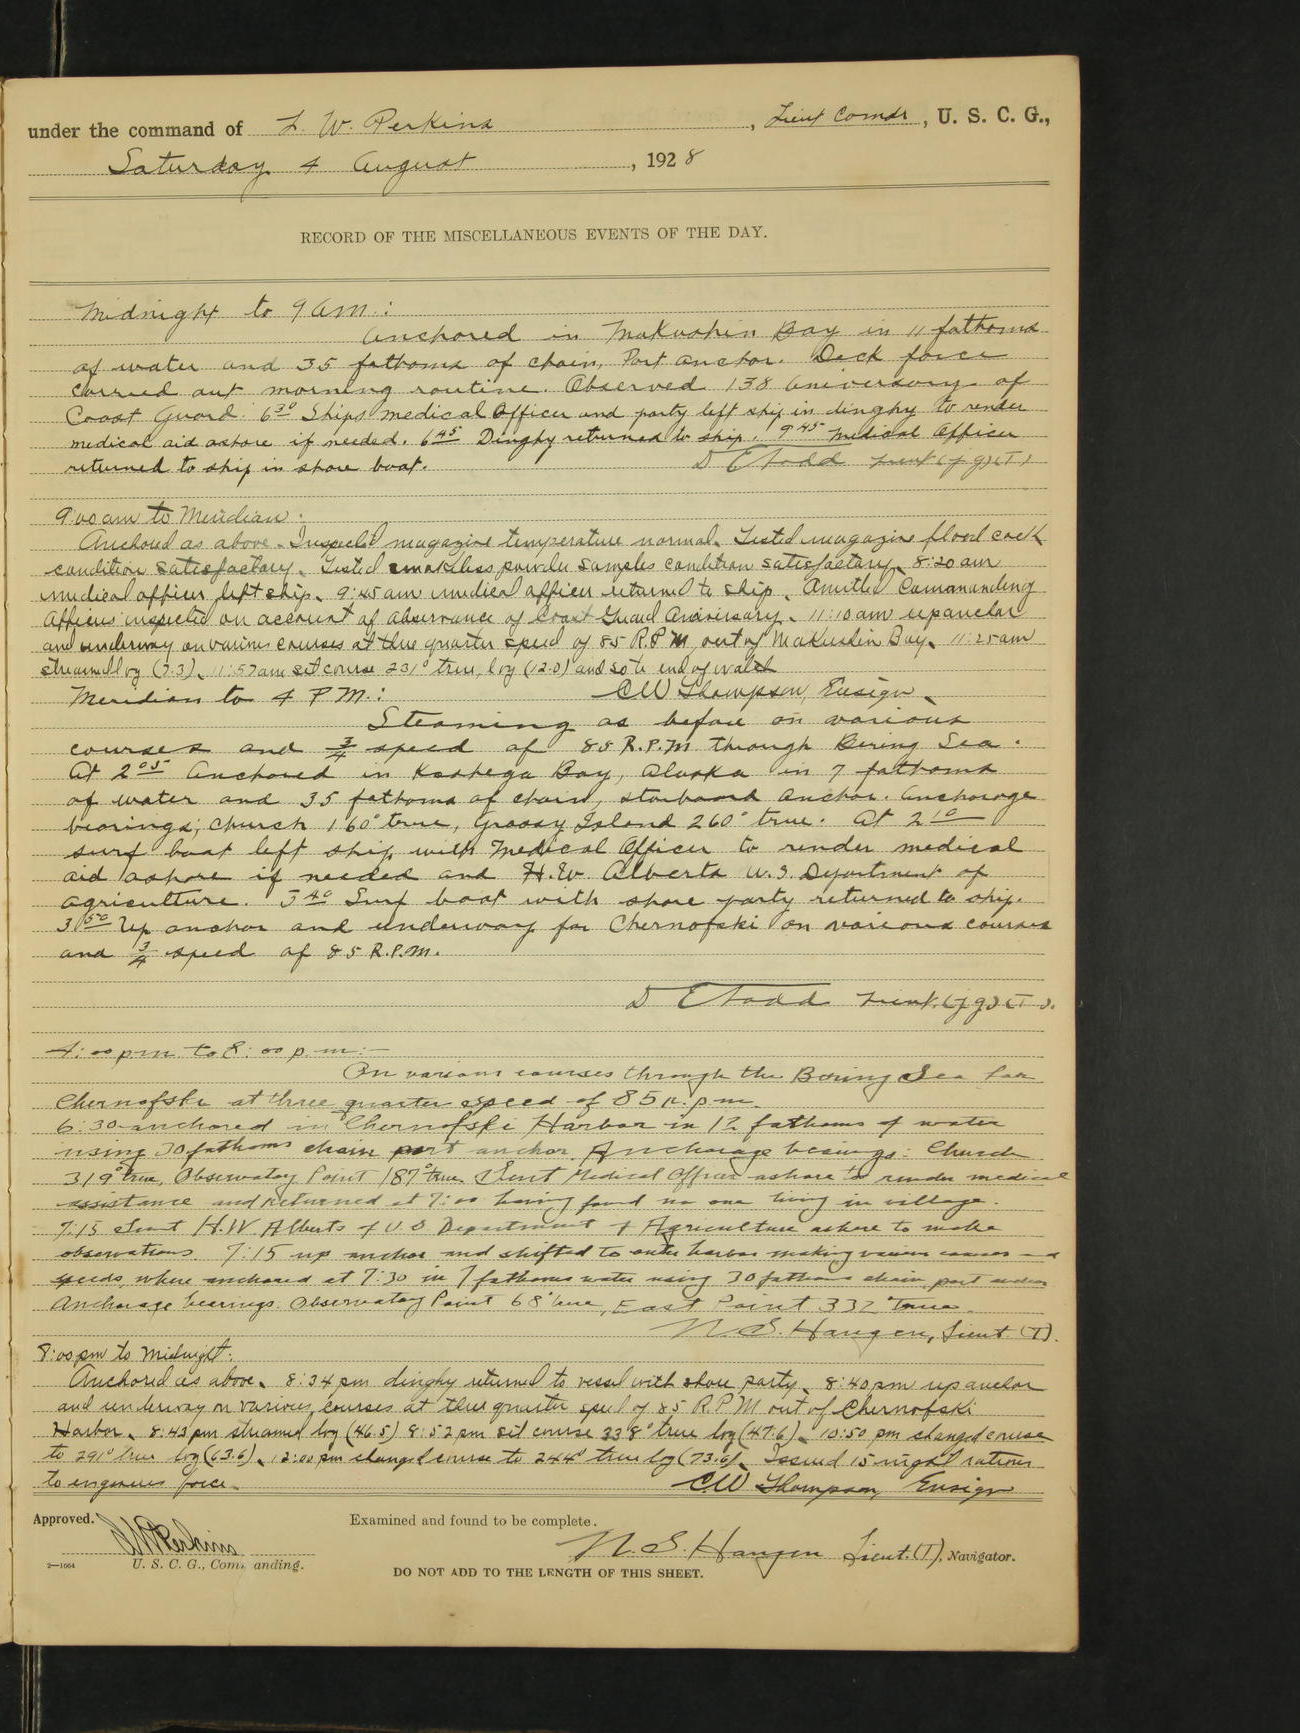 under the command of L. W. Perkins, Lieut Comdr, U. S. C. G.,
Saturday 4 August, 1928
RECORD OF THE MISCELLANEOUS EVENTS OF THE DAY.
Midnight to 9 am:
Anchored in Makushin Bay in 11 fathoms
of water and 35 fathoms of chain, Port anchor. Deck force
carried out morning routine. Observed 138 aniversary of
Coast Guard. 6 30 Ships medical officer and party left ship in dinghy to render
medical aid ashore if needed. 6 45 Dinghy returned to ship. 9 45 medical officer
returned to ship in shore boat. D E Todd Lieut (j g) (T)
9:00 am to Meridian:
Anchored as above. Inspected magazine temperature normal. Tested magazine flood cock
condition satisfactory. Tested smokeless powder samples condition satisfactory. 8:20 am
medical officer left ship. 9:45 am medical officer returned to ship. Omitted Commanding
Officers inspection on account of observance of Coast Guard Aniversary. 11:10 am up anchor
and underway on various courses at three quarter speed of 85 R.P.M. out of Makushin Bay. 11:25 am
streamed log (7.3). 11:57 am set course 231° true, log (12.0) and so to end of watch
C W Thompson, Ensign.
Meridian to 4 P M.:
Steaming as before on various
courses and 3/4 speed of 85 R.P.M through Bering Sea.
At 2 05 anchored in Kashega Bay, Alaska in 7 fathoms
of water and 35 fathoms of chain, starboard anchor. Anchorage
bearings; church 160° true, Grassy Island 260° true. At 2 10
surf boat left ship with Medical Officer to render medical
aid ashore if needed and H.W. Alberts U.S. Department of
agriculture. 3 40 Surf boat with shore party returned to ship.
3 50 Up anchor and underway for Chernofski on various courses
and 3/4 speed of 85 R.P.M.
D E Todd Lieut. (j g) (T).
4:00 p m. to 8:00 p.m:-
On various courses through the Bering Sea for
Chernofski at three quarter speed of 85 r.p.m.
6:30 anchored in Chernofski Harbor in 12 fathoms of water
using 30 fathoms chain port anchor. Anchorage bearings: Church
319° true, Observatory Point 187° true. Sent Medical Officer ashore to render medical
assistance and returned at 7:00 having found no one living in village.
7:15 Sent H.W. Alberts of U.S. Department of Agriculture ashore to make
observations. 7:15 up anchor and shifted to outer harbor making various courses and
speeds, where anchored at 7:30 in 7 fathoms water using 30 fathoms chain port anchor
Anchorage bearings. Observatory Point 68° true, East Point 332° true.
N. S. Haugen, Lieut. (T).
8:00 pm to Midnight:
Anchored as above. 8:34 pm dinghy returned to vessel with shore party. 8:40 pm up anchor
and underway on various courses at three quarter speed of 85 R.P.M out of Chernofski
Harbor. 8:43 pm streamed log (46.5) 8:52 pm set course 338° true log (47.6). 10:50 pm changed course
to 291° true log (63.6). 12:00 pm changed course to 244° true log (73.6). Issued 15 night rations
to engineers force. C.W Thompson, Ensign
Approved. Examined and found to be complete.
L W Perkins N. S. Haugen Lieut. (T), Navigator.
2—1664 U. S. C. G., Commanding.
DO NOT ADD TO THE LENGTH OF THIS SHEET.